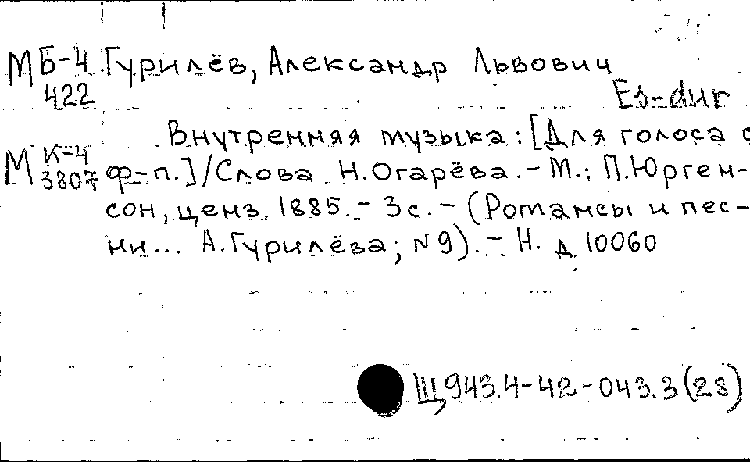 М Б-4 Гурилёв, Александр Львович
422
Es-dur
Внутренняя музыка: [Для голоса с
М К-4 3807 ф-п.] / Слова Н. Огарёва. - М.: П. Юрген-
сон, ценз. 1885. - 3 с. - (Романсы и пес-
ни... А. Гурилёва; № 9). - Н. д. 10060
Щ 943.4-42-043.3(2S)